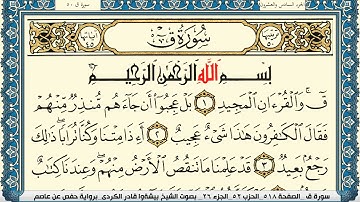 الجزء السادس والعشرون
سورة ق ٥٠
سُورَةُ قٓ
بِسْمِ اللَّهِ الرَّحْمَٰنِ الرَّحِيمِ
قٓ ۚ وَالْقُرْءَانِ الْمَجِيدِ ١ بَلْ عَجِبُوٓا أَن جَآءَهُم مُّنذِرٌ مِّنْهُمْ
فَقَالَ الْكَٰفِرُونَ هَٰذَا شَىْءٌ عَجِيبٌ ٢ أَءِذَا مِتْنَا وَكُنَّا تُرَابًا ۖ ذَٰلِكَ
رَجْعٌۢ بَعِيدٌ ٣ قَدْ عَلِمْنَا مَا تَنقُصُ الْأَرْضُ مِنْهُمْ ۖ وَعِندَنَا كِتَٰبٌ
سورة ق_ الصفحة ٥١٨_ الحزب ٥٢_ الجزء ٢٦_ بصوت الشيخ بيشةوا قادر الكردى_ برواية حفص عن عاصم